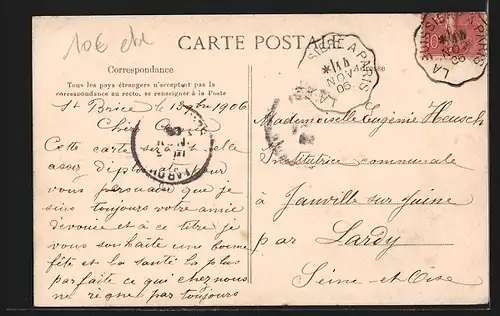 10€
CARTE POSTALE
Correspondance
Adresse
Tous les pays étrangers n'acceptent pas la
correspondance au recto, se renseigner à la Poste
St Brice le 13 9bre 1906
Cette carte sera-t-elle
assez
vous persuader que je
suis toujours votre amie
dévouée et à ce titre je
vous souhaite une bonne
fête et la santé la plus
parfaite ce qui chez nous
ne règne pas toujours
Mademoiselle Eugénie Heusch
Institutrice communale
à Janville sur Juine
par Lardy
Seine-et-Oise
A PARIS
NOV
06
LARDY